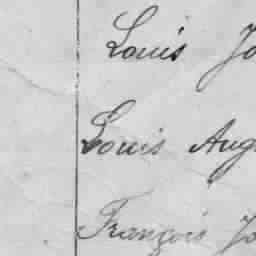 Louis Jo
Louis Aug
François Jo